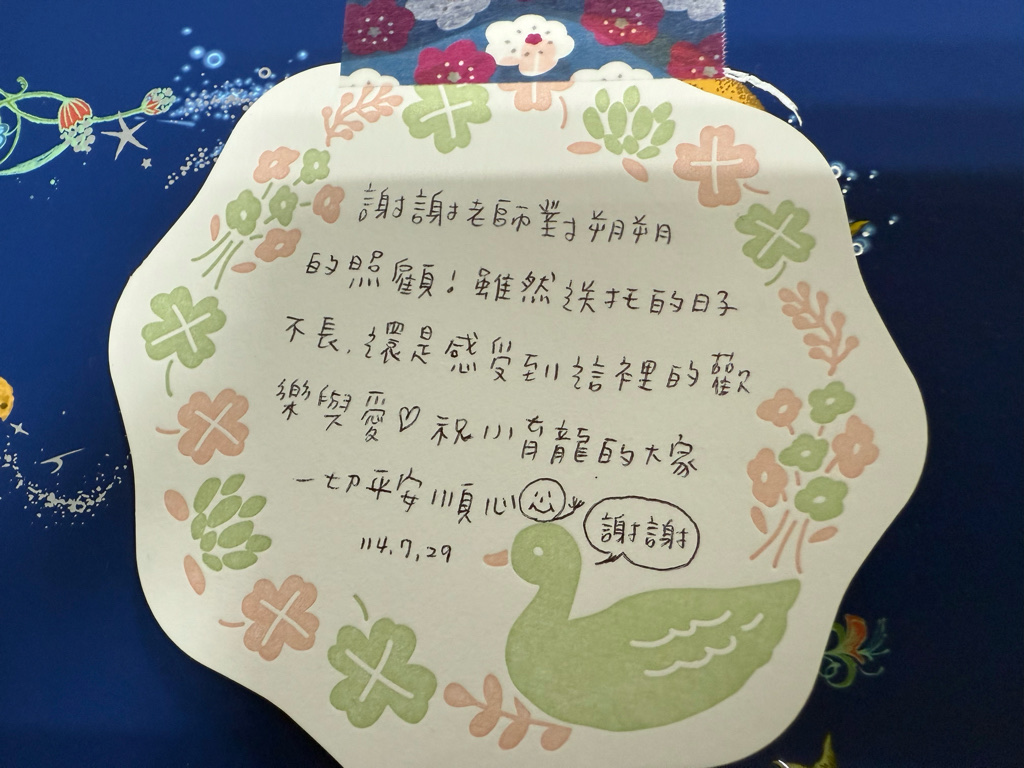 謝謝老師對朔朔
的照顧!雖然送托的日子
不長,還是感受到這裡的歡
樂與愛♡祝小青龍的大家
一切平安順心
114.7.29
謝謝